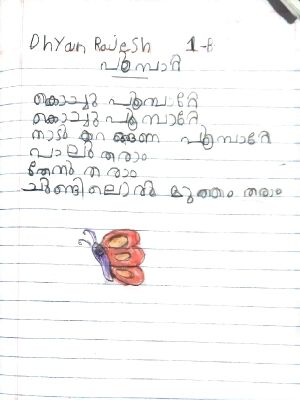 Dhyan Rajesh 1-B
പൂമ്പാറ്റ
കൊച്ചു പൂമ്പാറ്റേ
കൊച്ചു പൂമ്പാറ്റേ
നാടു കറങ്ങണ പൂമ്പാറ്റേ
പാലു തരാം
തേൻ തരാം
ചുണ്ടിലൊരു മുത്തം തരാം